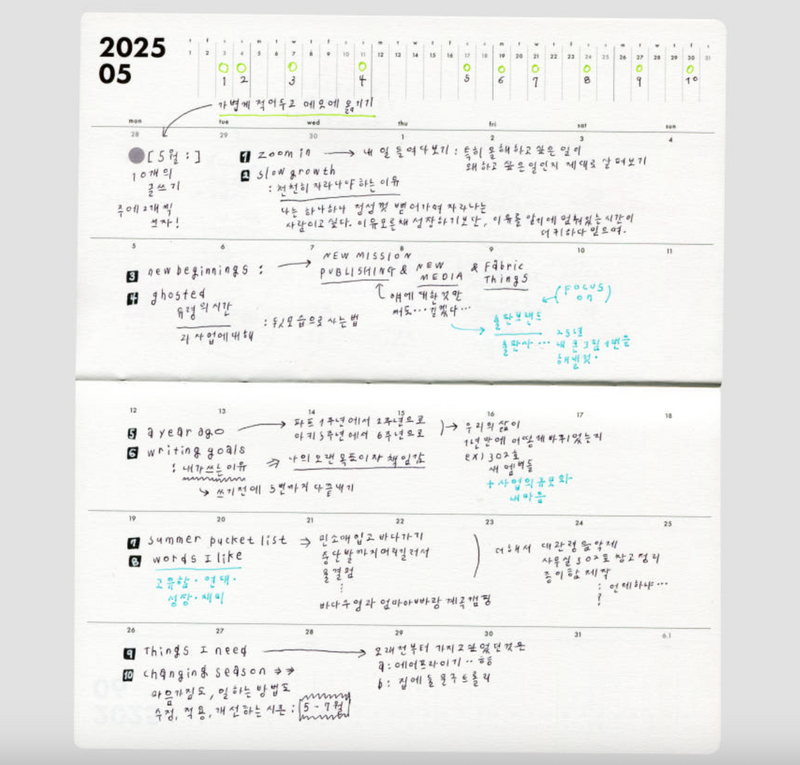 2025
05
1 2 3 4 5 6 7 8 9 10 11 12 13 14 15 16 17 18 19 20 21 22 23 24 25 26 27 28 29 30 31
1 2 3 4 5 6 7 8 9 10
가볍게 적어두고 메모에 옮기기
mon tue wed thu fri sat sun
28 29 30 1 2 3 4
[5월 :]
10개의
글쓰기
주에 2개씩
쓰자!
1 zoom in → 내 일 들여다보기 : 특히 올해하고 싶은 일이
왜 하고 싶은 일인지 제대로 살펴보기
2 slow growth
: 천천히 자라나야 하는 이유
나는 하나하나 정성껏 뱉어가며 자라나는
사람이고 싶다. 이유모른채 성장하기보단, 이유를 알기에 멈춰있는 시간이
더 귀하다 믿으며.
5 6 7 8 9 10 11
3 new beginnings : → NEW MISSION
PUBLISHING & NEW MEDIA & Fabric Things
4 ghosted
유령의 시간
과 사업에 대해 : 뒷모습으로 사는 법
얘에 대한 것만
써도… 길겠다…
(FOCUS ON)
출판브랜드
출판사 … 25년
내 큰 그림 1번을
해낼 것.
12 13 14 15 16 17 18
5 a year ago → 파프 1주년에서 2주년으로
아키 5주년에서 6주년으로
→ 우리의 삶이
1년만에 어떻게 바뀌었는지
ex) 302호
새 멤버들
+ 사업의 규모와
내 마음
6 writing goals
: 내가 쓰는 이유 ⇒ 나의 오랜 목표이자 책임감
↳ 쓰기 전에 5번까지 다 끝내기
19 20 21 22 23 24 25
7 summer bucket list → 민소매 입고 바다가기
중단발까지 머리 길러서
올결펌
⋮
바다수영과 엄마아빠랑 계곡캠핑
8 words I like
고유함 · 연대 ·
성장 · 재미
더해서 대관령음악제
사무실 302호 창고정리
종이함 제작
: 언제 하나…
?
26 27 28 29 30 31 6.1
9 Things I need → 오래전부터 가지고 싶었던 것은
a : 에어프라이기 .. 하하
b : 집에 둘 문구 트롤리
10 changing season →→
마음가짐도, 일하는 방법도
수정, 적용, 개선하는 시즌 : [5-7월]